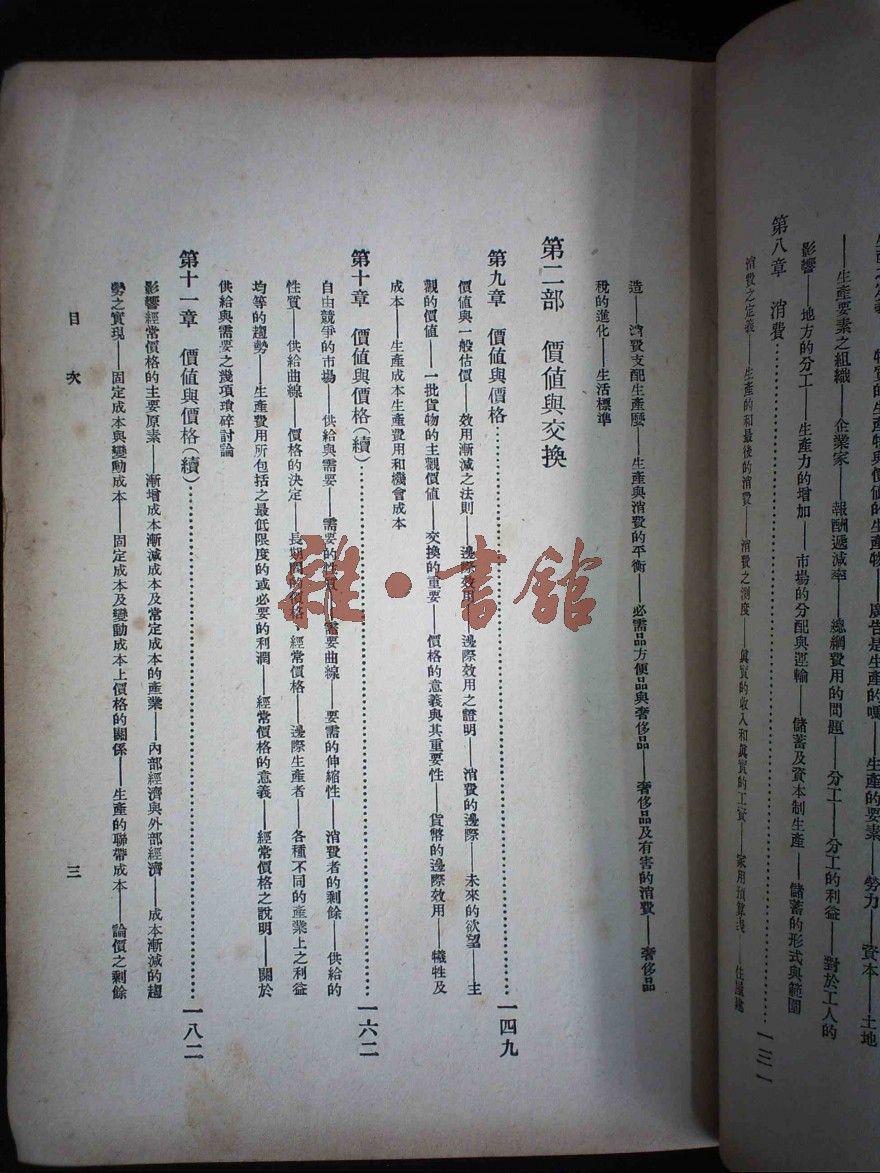 ——生產要素之組織——企業家——報酬遞減率——總綱費用的問題——分工——分工的利益——對於工人的
影響——地方的分工——生產力的增加——市場的分配與運輸——儲蓄及資本制生產——儲蓄的形式與範圍
第八章 消費……一三一
消費之定義——生產的和最後的消費——消費之測度——眞實的收入和眞實的工資——家用預算表——住屋建
造——消費支配生產麼——生產與消費的平衡——必需品方便品與奢侈品——奢侈品及有害的消費——奢侈品
稅的進化——生活標準
第二部 價値與交換
第九章 價値與價格……一四九
價値與一般估價——效用漸減之法則——邊際效用——邊際效用之證明——消費的邊際——未來的欲望——主
觀的價値——一批貨物的主觀價値——交換的重要——價格的意義與其重要性——貨幣的邊際效用——犧牲及
成本——生產成本生產費用和機會成本
第十章 價値與價格(續)……一六二
自由競爭的市場——供給與需要——需要的性質——需要曲線——要需的伸縮性——消費者的剩餘——供給的
性質——供給曲線——價格的決定——長期間的價格,經常價格——邊際生產者——各種不同的產業上之利益
均等的趨勢——生產費用所包括之最低限度的或必要的利潤——經常價格的意義——經常價格之說明——關於
供給與需要之幾項瑣碎討論
第十一章 價値與價格(續)……一八二
影響經常價格的主要原素——漸增成本漸減成本及常定成本的產業——內部經濟與外部經濟——成本漸減的趨
勢之實現——固定成本與變動成本——固定成本及變動成本上價格的關係——生產的聯帶成本——論價之剩餘
目次 三
雜·書館